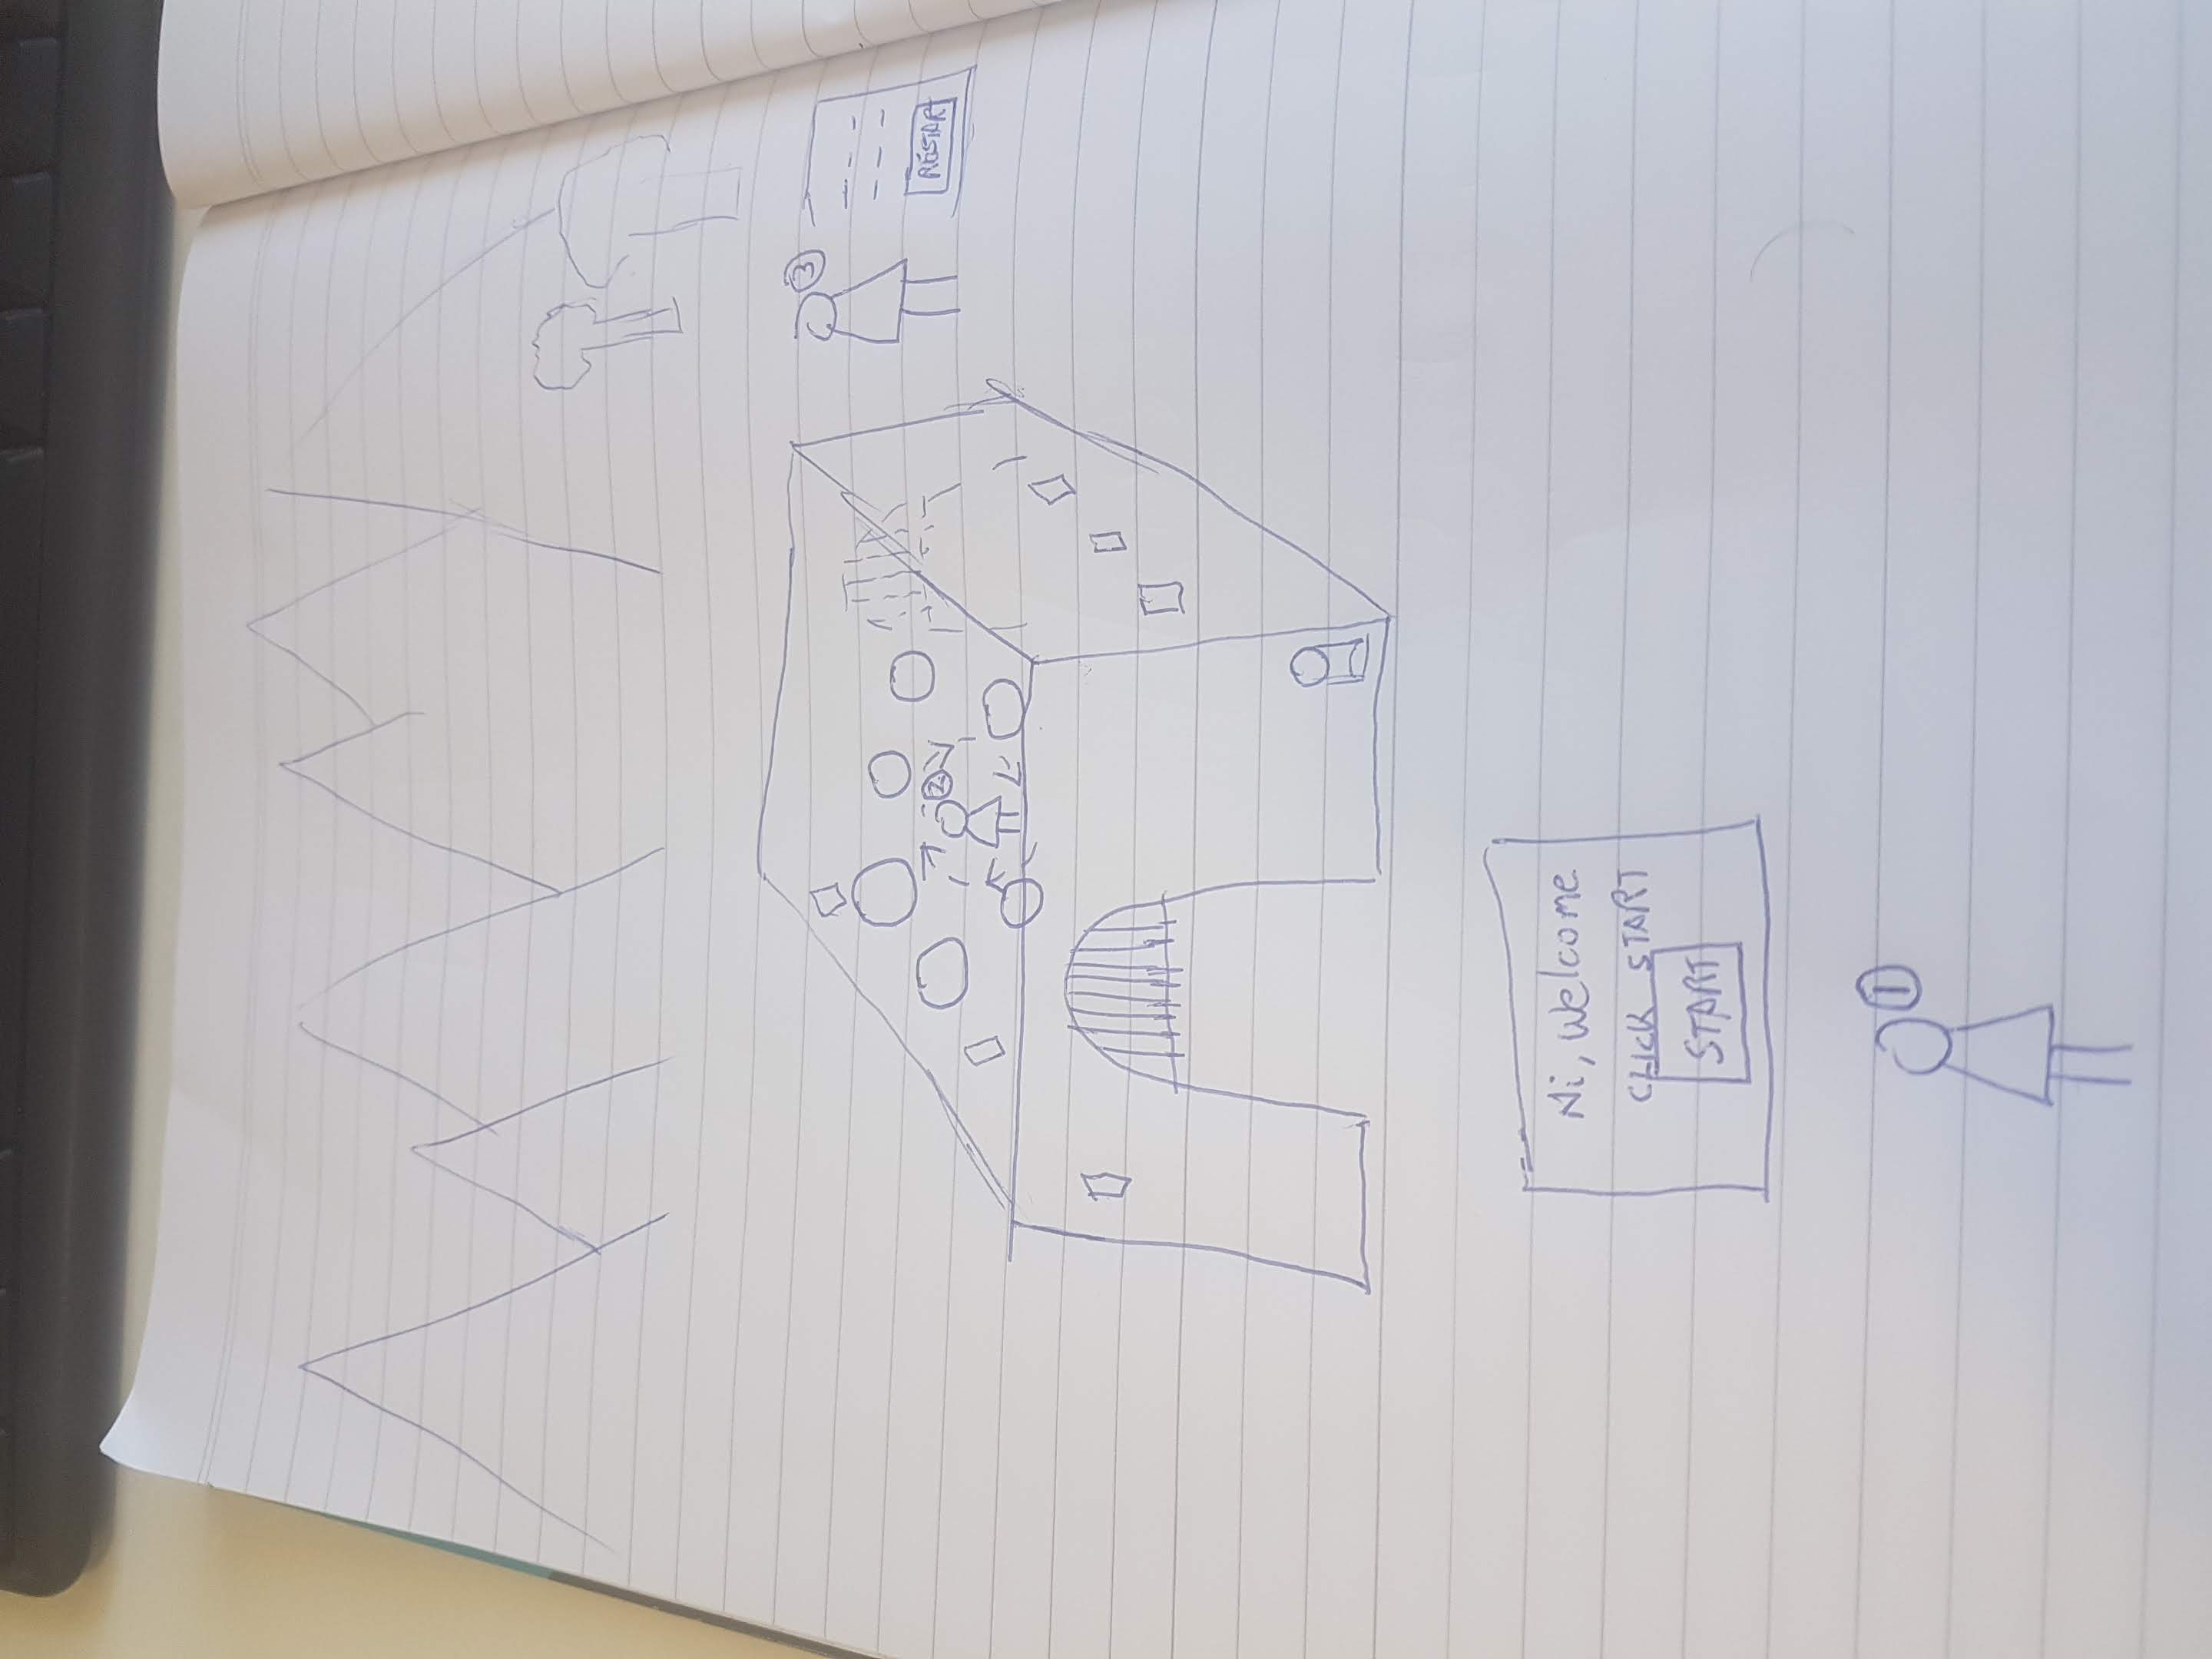 3
RESTAR
2
Hi, Welcome
CLICK START
START
1